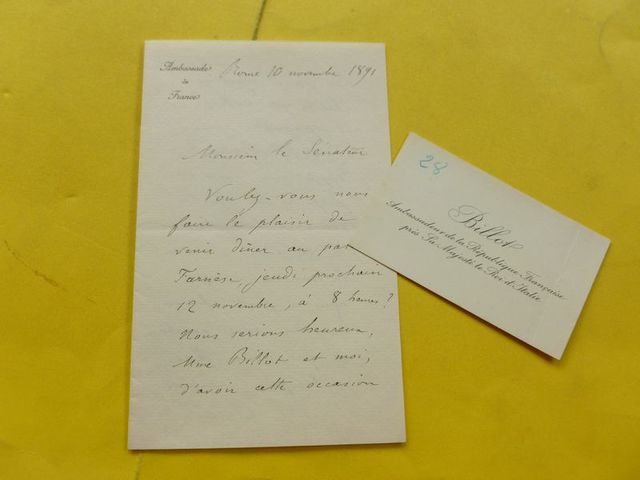 Ambassade
de
France
Rome 10 novembre 1891
Monsieur le Sénateur
Voulez-vous nous
faire le plaisir de
venir dîner au pa
Farnèse, jeudi prochain
12 novembre, à 8 heures?
Nous serions heureux,
Mme Billot et moi,
d'avoir cette occasion
28
Billot
Ambassadeur de la République Française
près Sa Majesté le Roi d'Italie